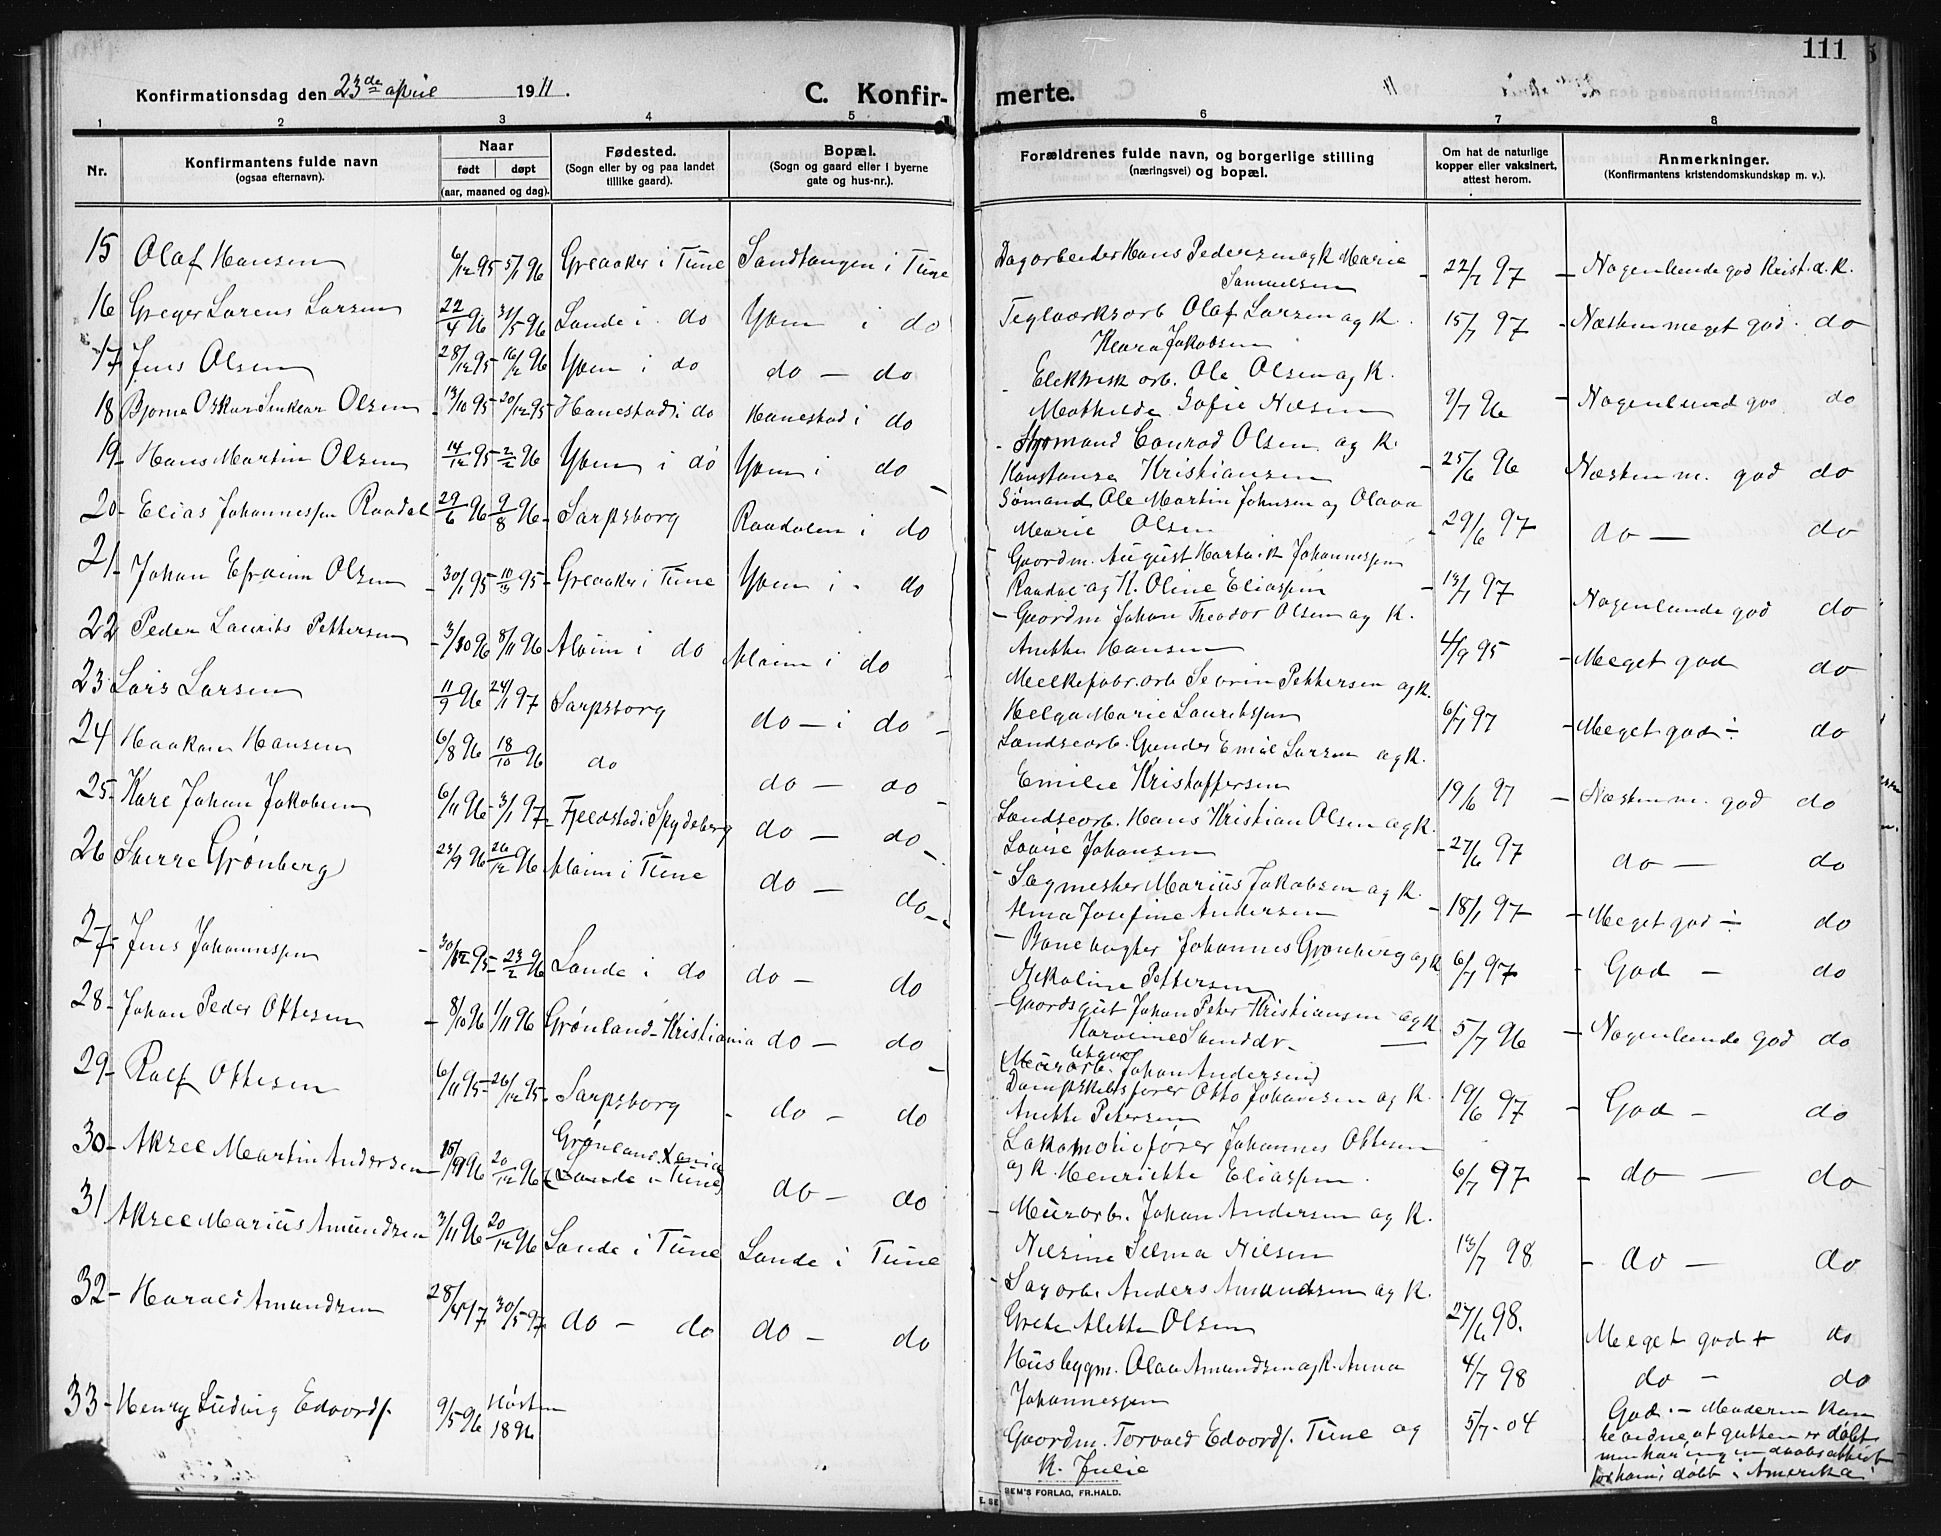 111
Konfirmationsdag den 23de april 1911.
C. Konfirmerte.
1 2 3 4 5 6 7 8
Nr.
Konfirmantens fulde navn
(ogsaa efternavn).
Naar
født døpt
(aar, maaned og dag).
Fødested.
(Sogn eller by og paa landet
tillike gaard).
Bopæl.
(Sogn og gaard eller i byerne
gate og hus-nr.).
Forældrenes fulde navn, og borgerlige stilling
(næringsvei) og bopæl.
Om hat de naturlige
kopper eller vaksinert,
attest herom.
Anmerkninger.
(Konfirmantens kristendomskundskap m. v.).
15 Olaf Hansen 6/12 95 5/1 96 Greaaker i Tune Sandtangen i Tune
Dagarbeider Hans Pedersen og k. Marie
Samuelsen
22/7 97 - Nogenlunde god krist.d.k.
16 Greger Lorens Larsen 22/4 96 31/5 96 Lande i do Yven i do
Teglverksarb Olaf Larsen og k.
Klara Jakobsen
15/7 97 - Næsten meget god do
17 Jens Olsen 28/12 95 16/2 96 Yven i do do - do
Elektrisk arb. Ole Olsen og k.
Mathilde Sofie Nilsen
9/7 96 - Nogenlund god do
18 Bjarne Oskar Sinklar Olsen 13/10 95 20/12 95 Hanestad i do Hanestad i do
Sjømand Conrad Olsen og k.
Konstanse Kristiansen
25/6 96 Næsten m. god do
19 Hans Martin Olsen 14/12 95 2/2 96 Yven i do Yven i do
Sømand Ole Martin Johnsen og Olava
Marie Olsen
29/6 97 do - do
20 Elias Johannessen Raadal 29/6 96 9/8 96 Sarpsborg Raadalen i do
Gaardm. August Hartvik Johannessen
Raadal og k. Oline Eliassen
13/7 97 Nogenlunde god do
21 Johan Efraim Olsen 30/1 95 10/3 95 Greaaker i Tune Yven i - do
Gaardm Johan Theodor Olsen og k.
Anette Hansen
4/9 95 - Meget god do
22 Peder Laurits Pettersen 3/10 96 8/11 96 Alvim i do Alvim i do
Melkefabr.arb Severin Pettersen og k.
Helga Marie Lauritssen
6/7 97 - Meget god ÷ do
23 Lars Larsen 11/9 96 24/1 97 Sarpsborg do - i do
Landsearb. Gunder Emil Larsen og k.
Emilie Kristoffersen
19/6 97 - Næsten m. god do
24 Haakon Hansen 6/8 96 18/10 96 do do - do
Landsearb. Hans Kristian Olsen og k.
Lovise Johansen
27/6 97 do - do
25 Kare Johan Jakobsen 6/11 96 3/1 97 Fjeldstad i Spydeberg do - do
Sagmester Marius Jakobsen og k.
Alma Josefine Andersen
18/1 97 - Meget god ÷ do
26 Sverre Grønberg 23/9 96 26/12 96 Alvim i Tune do - do
Banevogter Johannes Grønberg og k
Nikoline Pettersen
6/7 97 - God - do
27 Jens Johannessen 30/12 95 23/2 96 Lande i do do - do
Gaardsgut Johan Peter Kristiansen og k
5/7 96 - Nogenlunde god do
(Murarb. Johan Andersen)
28 Johan Peder Ottesen 8/10 96 1/11 96 Grønland - Kristiania do - do
Dampskibsfører Otto Johansen og k.
Anette Petersen
19/6 97 - God - do
29 Ralf Ottesen 6/11 95 26/12 95 Sarpsborg do - do
Lokomotivfører Johannes Ottesen
og k. Henriette Eliassen
6/7 97 - do - do
30 Aksel Martin Andersen 15/9 96 20/12 96 Grønland Xania
(Lande i Tune) do - do
Murarb. Johan Andersen og k.
Nilsine Selma Nilsen
13/7 98 - do - do
31 Aksel Marius Amundsen 3/11 96 20/12 96 Lande i Tune Lande i Tune
Sagarb. Anders Amundsen og k.
Grete Alette Olsen
27/6 98. Meget god + do
32 Harald Amundsen 28/4 97 30/5 97 do - do do - do
Husbygm. Olav Amundsen og k. Anna
Johannessen
4/7 98 do - do
33 Henry Ludvig Edvards. 9/5 96 Høsten
1896
Gaardm. Torvald Edvards. Tune og
k. Julie
5/7 - 04 God. - Moderen kan
at gutten er døbt
men har ingen daabsattest
for ham; døbt i Amerika
SEM'S FORLAG, FR.HALD.